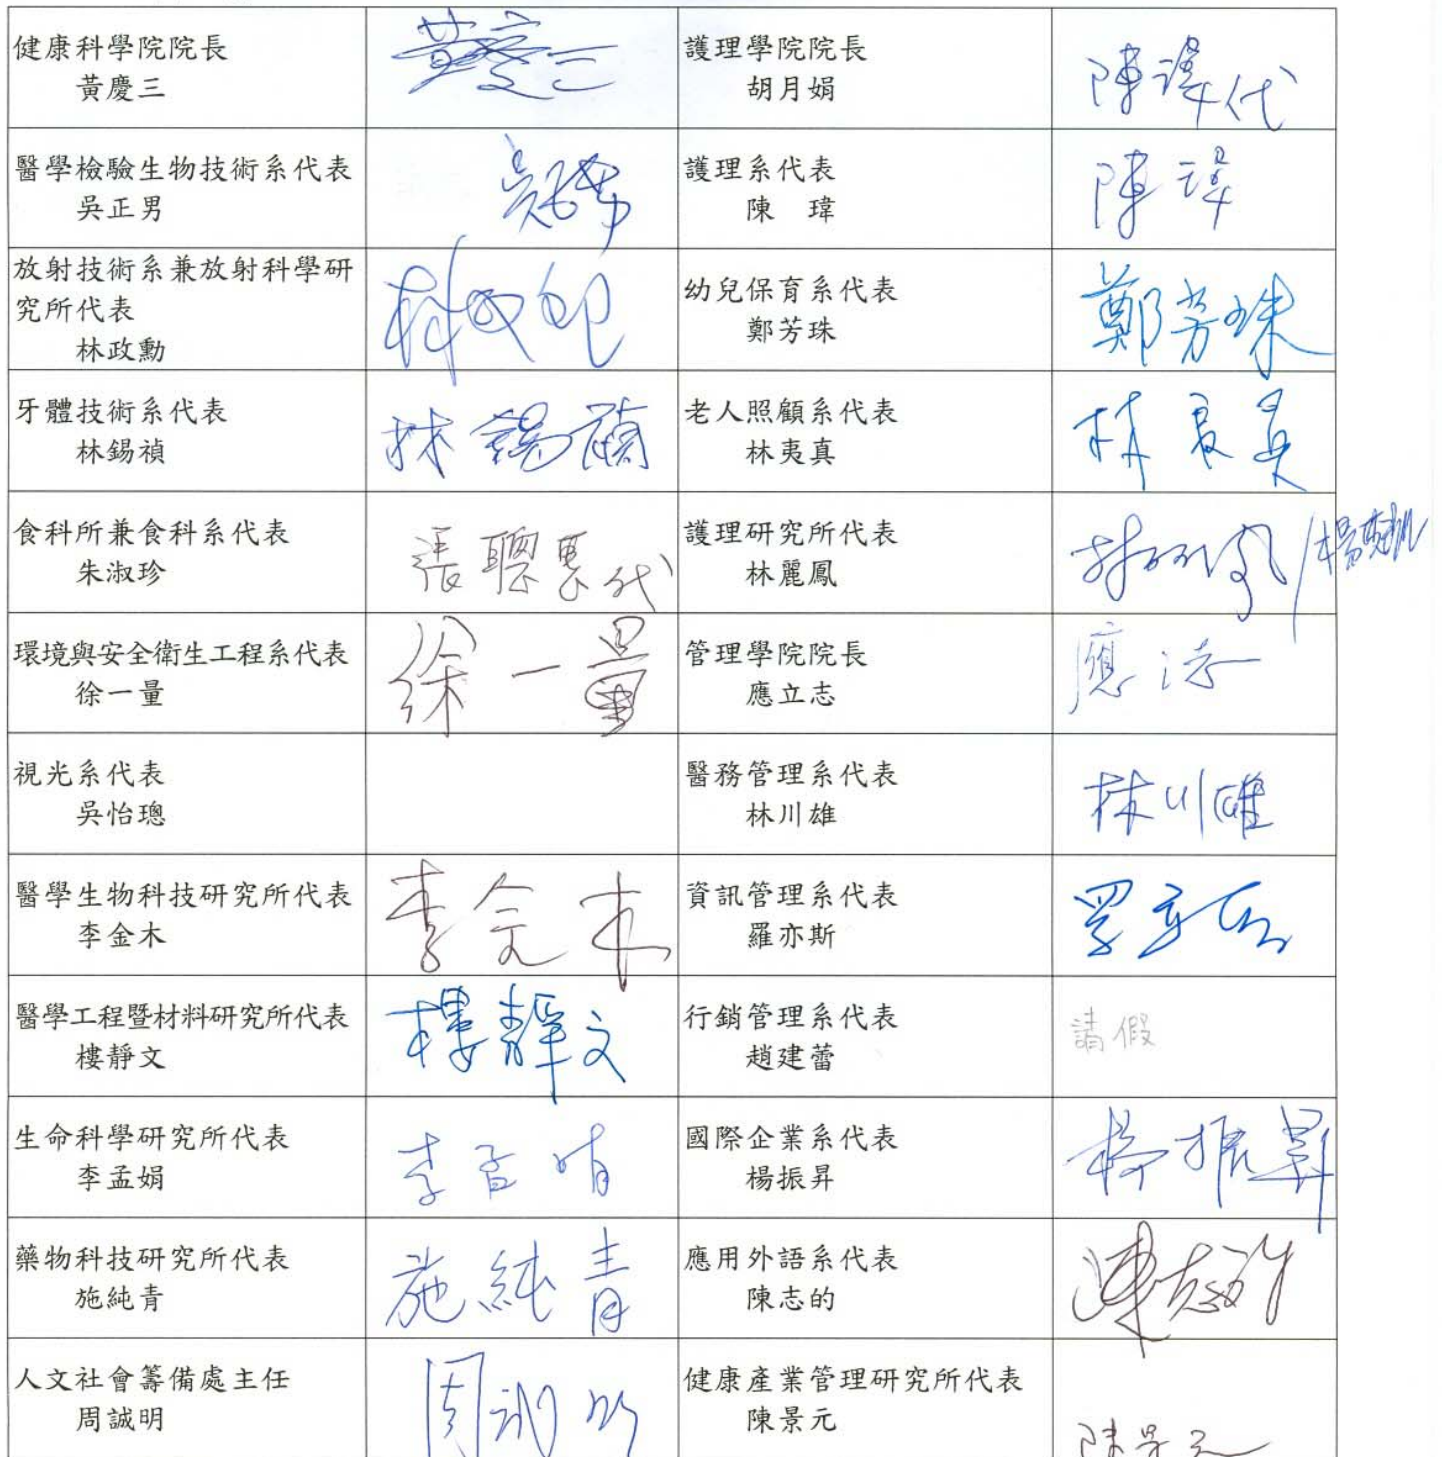 健康科學院院長
黃慶三
黃慶三
護理學院院長
胡月娟
陳瑋代
醫學檢驗生物技術系代表
吳正男
護理系代表
陳　瑋
陳瑋
放射技術系兼放射科學研
究所代表
林政勳
幼兒保育系代表
鄭芳珠
鄭芳珠
牙體技術系代表
林錫禎
林錫禎
老人照顧系代表
林夷真
林夷真
食科所兼食科系代表
朱淑珍
張聰惠代
護理研究所代表
林麗鳳
環境與安全衛生工程系代表
徐一量
徐一量
管理學院院長
應立志
視光系代表
吳怡璁
醫務管理系代表
林川雄
林川雄
醫學生物科技研究所代表
李金木
李金木
資訊管理系代表
羅亦斯
羅亦斯
醫學工程暨材料研究所代表
樓靜文
樓靜文
行銷管理系代表
趙建蕾
請假
生命科學研究所代表
李孟娟
李孟娟
國際企業系代表
楊振昇
楊振昇
藥物科技研究所代表
施純青
施純青
應用外語系代表
陳志的
人文社會籌備處主任
周誠明
周誠明
健康產業管理研究所代表
陳景元
陳景元